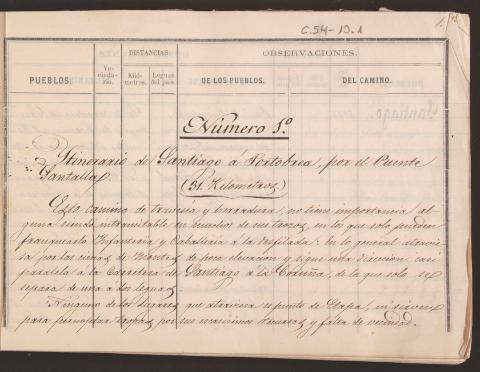 C.54-10.1
PUEBLOS.
Ve-
cinda-
rio.
DISTANCIAS.
Kiló-
metros.
Leguas
del país.
OBSERVACIONES.
DE LOS PUEBLOS.
DEL CAMINO.
Número 1.º
Itinerario de Santiago á Portobrea, por el Puente
Santalla.
(51. Kilómetros)
Este camino de travesía y herradura, no tiene importancia al-
guna siendo intransitable en muchos de sus trozos, en los que solo pueden
franquearlo Infantería y Caballería á la desfilada: En lo general atravie-
sa por las cimas de Montes de poca elevacion y sigue una direccion casi
paralela á la Carretera de Santiago á la Coruña, de la que solo se
separa de una á dos leguas.
Ninguno de los lugares que atraviesa es punto de Etapa, ni sirven
para pernoctar tropas, por sus escasísimos recursos y falta de vecindad.